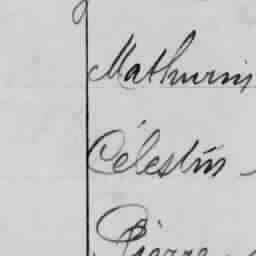 Mathurin
Célestin -
Pierre -